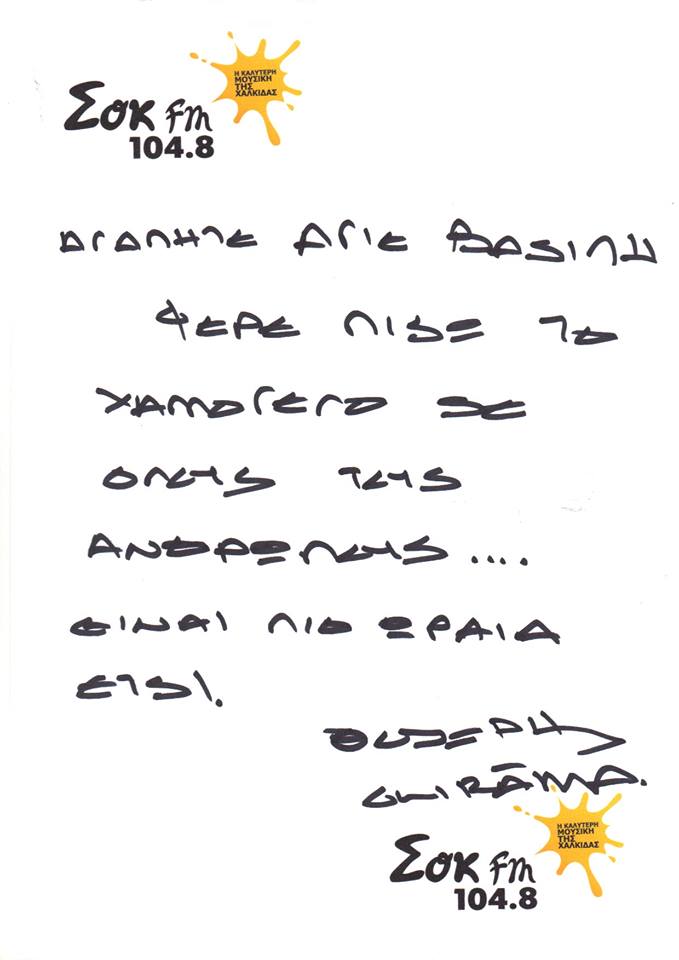 Η ΚΑΛΥΤΕΡΗ
ΜΟΥΣΙΚΗ
ΤΗΣ
ΧΑΛΚΙΔΑΣ
Σοκ fm
104.8
ΑΓΑΠΗΤΕ ΑΓΙΕ ΒΑΣΙΛΗ
ΦΕΡΕ ΠΙΣΩ ΤΟ
ΧΑΜΟΓΕΛΟ ΣΕ
ΟΛΟΥΣ ΤΟΥΣ
ΑΝΘΡΩΠΟΥΣ ....
ΕΙΝΑΙ ΠΙΟ ΩΡΑΙΑ
ΕΤΣΙ!
Η ΚΑΛΥΤΕΡΗ
ΜΟΥΣΙΚΗ
ΤΗΣ
ΧΑΛΚΙΔΑΣ
Σοκ fm
104.8